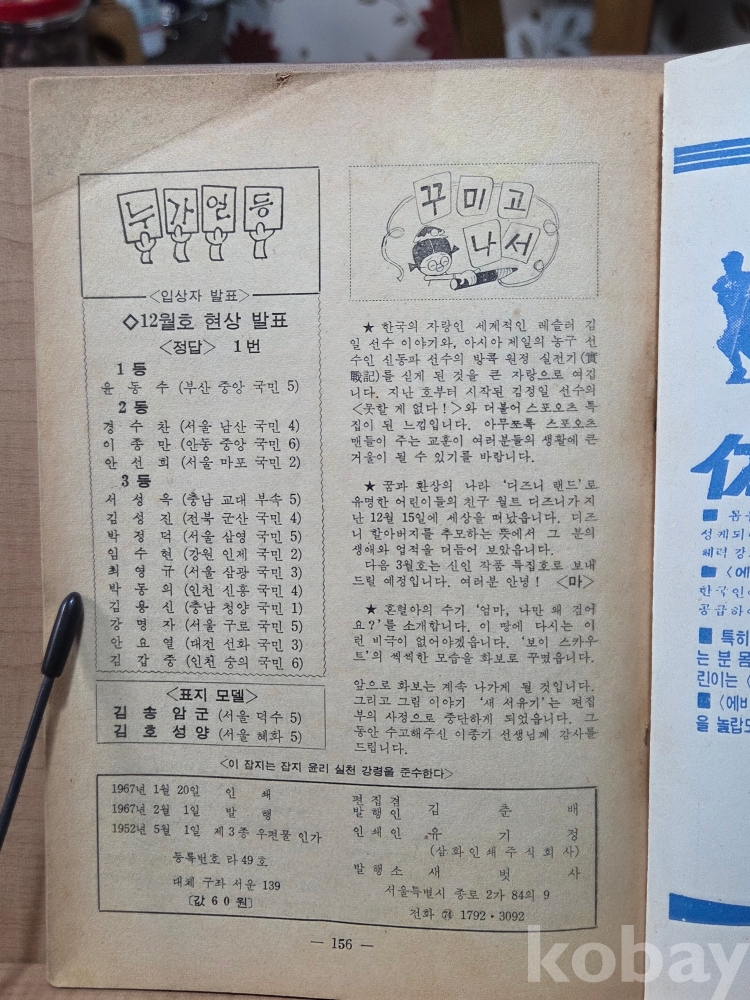 누가 일등
<입상자 발표>
◇12월호 현상 발표
<정답> 1번
1등
윤동수 (부산 중앙 국민 5)
2등
경수찬 (서울 남산 국민 4)
이종만 (안동 중앙 국민 6)
안선희 (서울 마포 국민 2)
3등
서성옥 (충남 교대 부속 5)
김성진 (전북 군산 국민 4)
박정덕 (서울 삼영 국민 5)
임수현 (강원 인제 국민 2)
최영규 (서울 삼광 국민 3)
박동의 (인천 신흥 국민 4)
김용신 (충남 청양 국민 1)
강명자 (서울 구로 국민 5)
안요열 (대전 선화 국민 3)
김갑중 (인천 숭의 국민 6)
<표지 모델>
김송암군 (서울 덕수 5)
김호성양 (서울 혜화 5)
꾸미고
나서
★ 한국의 자랑인 세계적인 레슬러 김
일 선수 이야기와, 아시아 제일의 농구 선
수인 신동파 선수의 방콕 원정 실전기(實
戰記)를 싣게 된 것을 큰 자랑으로 여깁
니다. 지난 호부터 시작된 김정일 선수의
<못할 게 없다!>와 더불어 스포오츠 특
집이 된 느낌입니다. 아무쪼록 스포오츠
맨들이 주는 교훈이 여러분들의 생활에 큰
거울이 될 수 있기를 바랍니다.
★ 꿈과 환상의 나라 ‘디즈니 랜드’로
유명한 어린이들의 친구 월트 디즈니가 지
난 12월 15일에 세상을 떠났읍니다. 디즈
니 할아버지를 추모하는 뜻에서 그 분의
생애와 업적을 더듬어 보았읍니다.
다음 3월호는 신인 작품 특집호로 보내
드릴 예정입니다. 여러분 안녕! <마>
★ 혼혈아의 수기 ‘엄마, 나만 왜 검어
요?’를 소개합니다. 이 땅에 다시는 이
런 비극이 없어야겠읍니다. ‘보이 스카우
트’의 씩씩한 모습을 화보로 꾸몄읍니다.
앞으로 화보는 계속 나가게 될 것입니다.
그리고 그림 이야기 ‘새 서유기’는 편집
부의 사정으로 중단하게 되었읍니다. 그
동안 수고해주신 이종기 선생님께 감사를
드립니다.
<이 잡지는 잡지 윤리 실천 강령을 준수한다>
1967년 1월 20일 인쇄
1967년 2월 1일 발행
1952년 5월 1일 제3종 우편물 인가
등록번호 라 49호
대체 구좌 서운 139
[값 60원]
편집겸
발행인 김춘배
인쇄인 유기정
(삼화인쇄주식회사)
발행소 새벗사
서울특별시 종로 2가 84의 9
전화 ㉔ 1792·3092
— 156 —
■ 몸을
성케되
체력 강
■ <에
한국인
공급하
■ 특히
는 분 몸
린이는 <
■ <에비
을 놀랍도
kobay